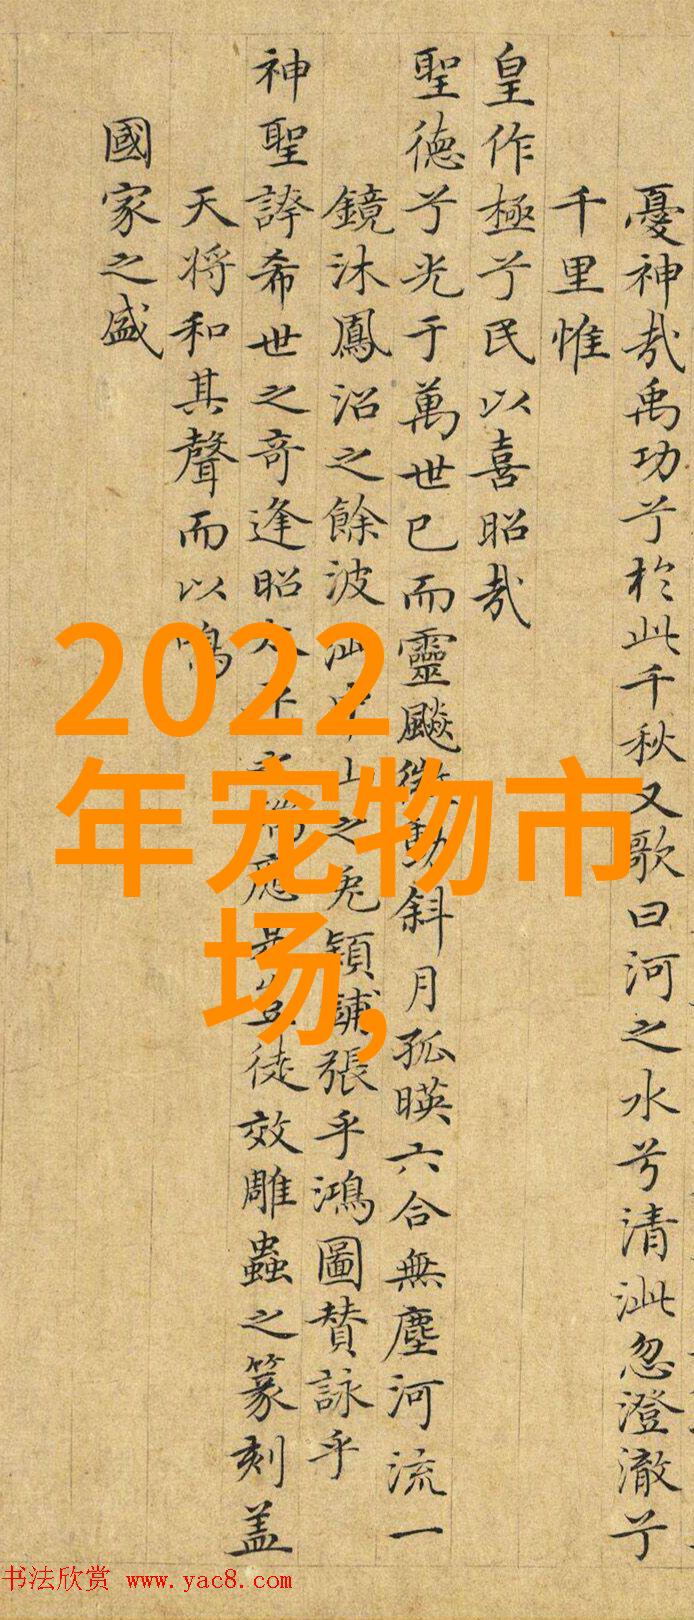 憂神哉禹功兮於此千秋又歌曰河之水兮清泚忽澄澈兮
千里惟
皇作極兮民以喜昭哉
聖德兮光于萬世已而靈飈微動斜月孤暎六合無塵河流一
鏡沐鳳沼之餘波 之 穎誧張乎鴻圖贊詠乎
神聖誇希世之奇逢昭 徒效雕蟲之篆刻盖
天将和其聲而以鳴
國家之盛
2022
年宠物市
场,
书法欣赏 www.yac8.com